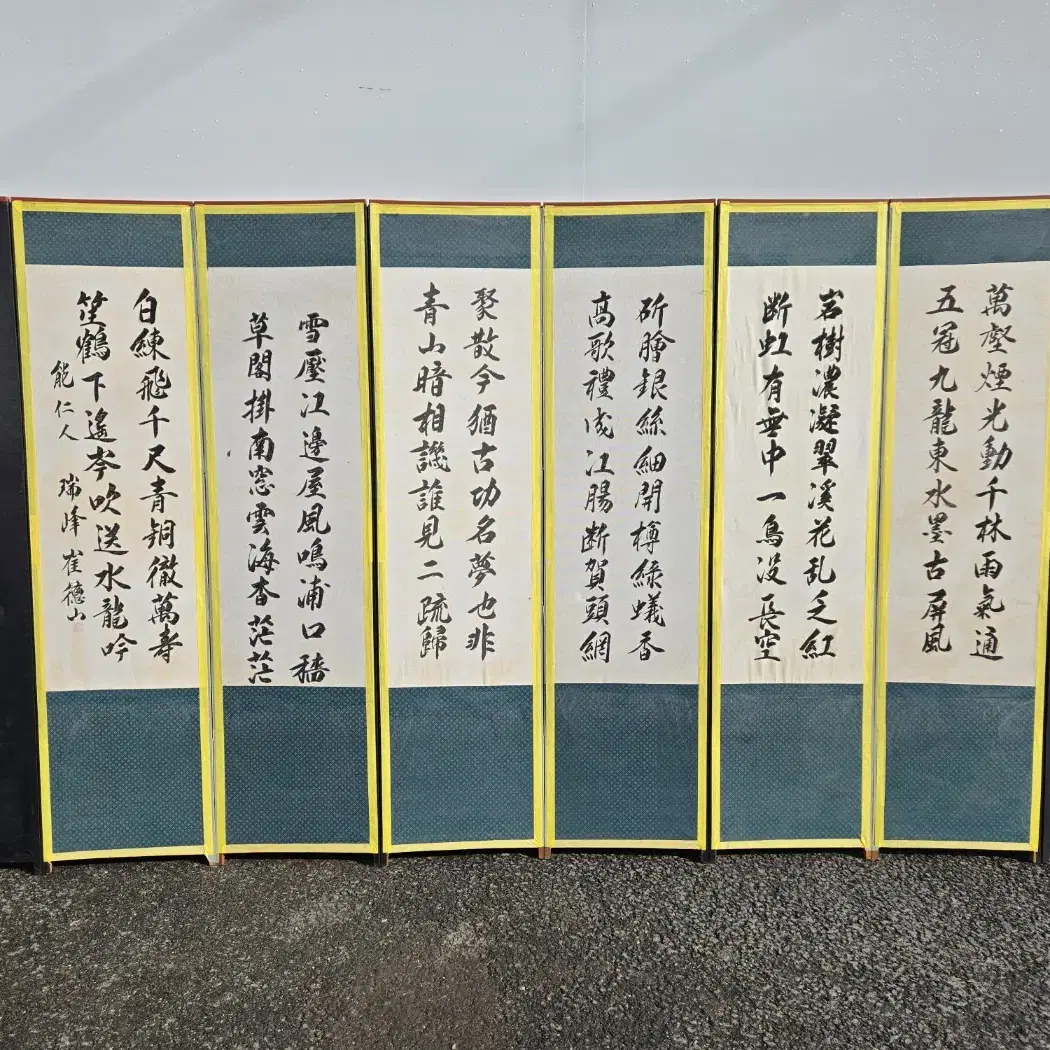 萬壑煙光動千林雨氣通
五冠九龍東水墨古屏風
岩樹濃凝翠溪花乱乏紅
断虹有無中一鳥没長空
斫膾銀絲細開樽綠蟻香
高歌禮成江腸断賀頭綱
聚散今猶古功名夢也非
青山暗相譏誰見二疏歸
雪壓江邊屋風鳴浦口檣
草閣掛南窓雲海杳茫茫
白練飛千尺青铜徹萬寿
笙鶴下遙岑吹送水龍吟
能仁人 瑞峰 崔德山